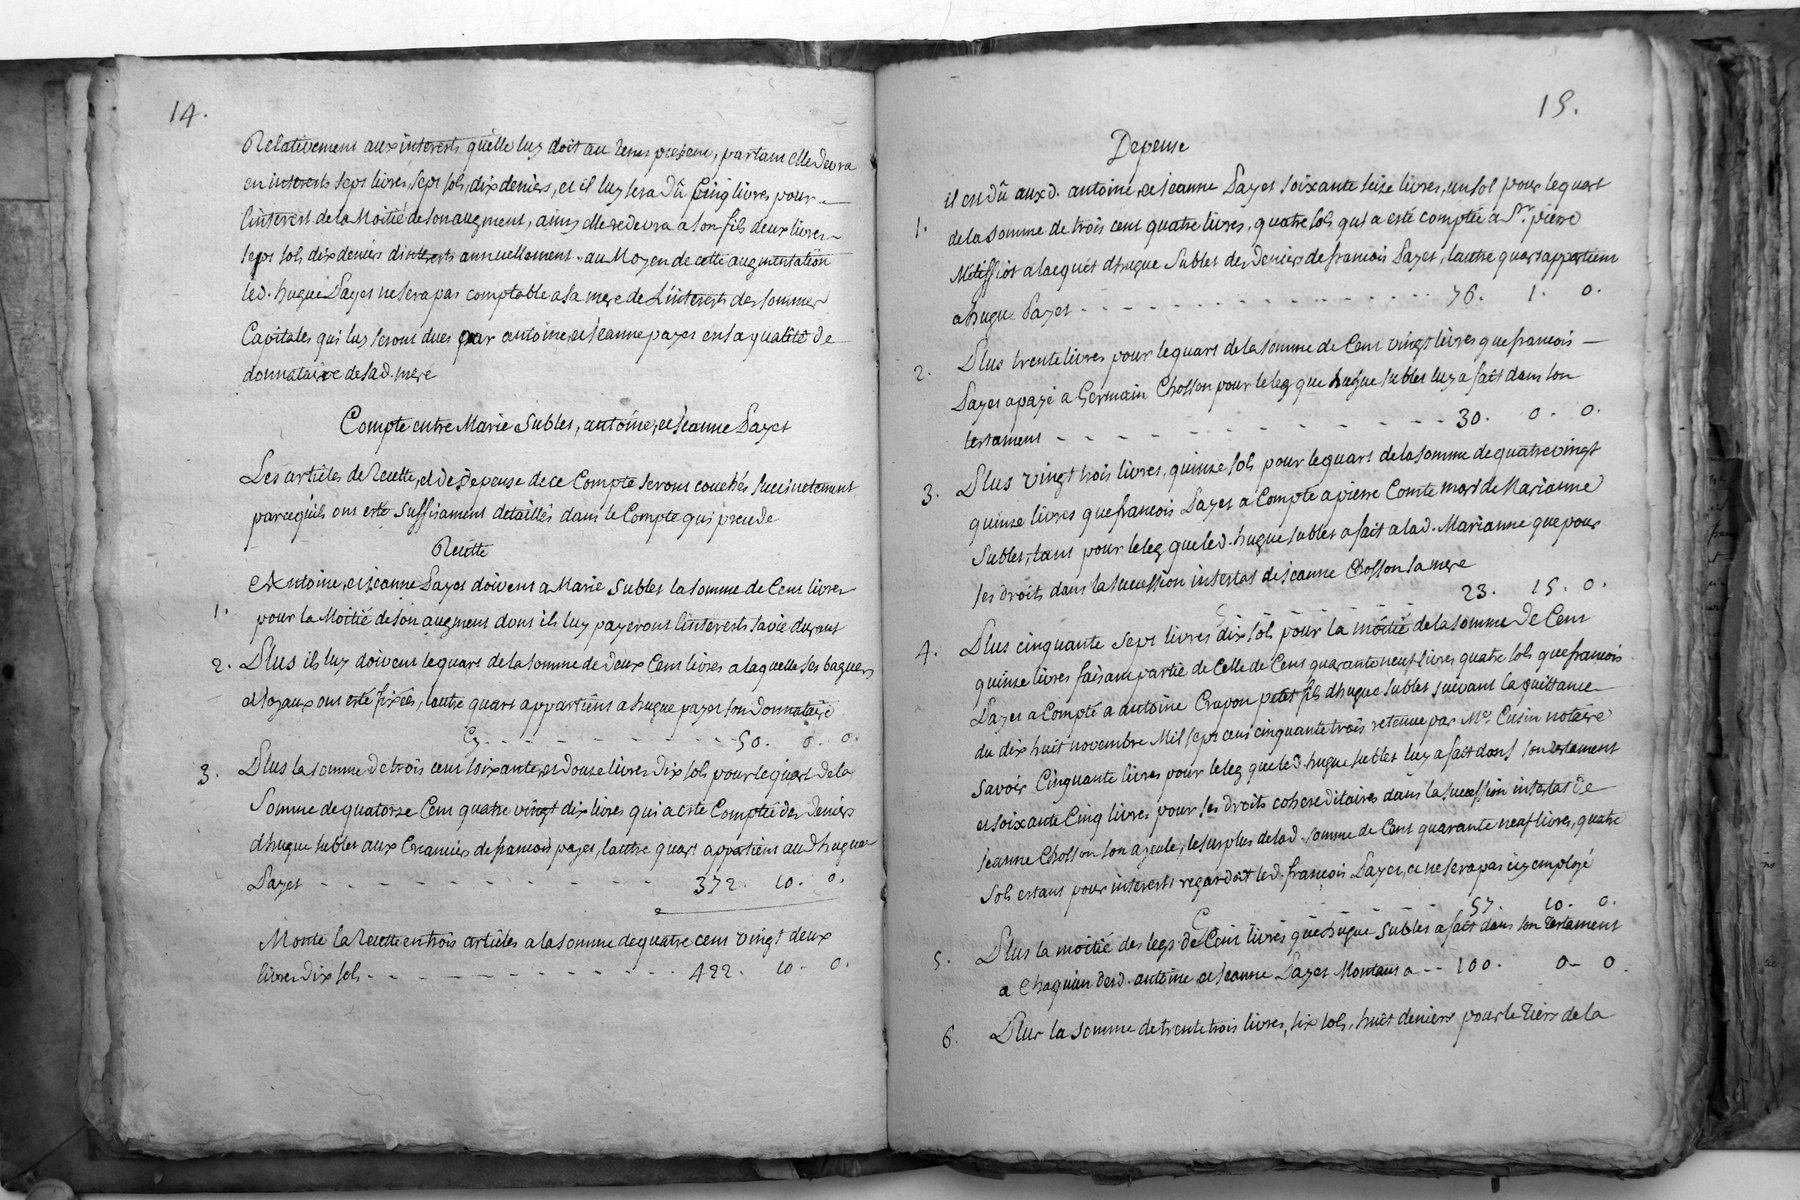 14.
Relativement aux interests quelle luy doit au tems present, partant elle devra
en interests sept livres, sept sols, dix deniers, et il luy sera dû Cinq livres pour
linterest de la Moitié de son augment, ainsy elle redevra a son fils deux livres
sept sols dix deniers dinterests annuellement. au Moyen de cette augmentation
led. hugue Payet ne sera pas comptable a sa mere de Linterests des sommes
Capitales qui luy seront dues par antoine, et jeanne payet en sa qualité de
donnataire de sad. mere
Compte entre Marie Sublet, antoine, et jeanne Payet
Les articles de Recette, et de Depense de ce Compte seront couchés succinctement
parcequils ont esté suffisament detaillés dans le Compte qui precede
Recette
Antoine, et jeanne Payet doivent a Marie Sublet la somme de Cent livres
1. pour la Moitié de son augment dont ils luy payeront linterests sa vie durant
2. Plus ils luy doivent le quart de la somme de deux Cent livres a laquelle ses bagues
et Joyaux ont esté fixés, lautre quart appartient a hugue payet son donnataire
Cy - - - - - - - - 50. 0. 0.
3. Plus la somme de trois cent soixante, et douze livres dix sols pour le quart de la
Somme de quatorze Cent quatre vingt dix livres qui a esté Comptée des deniers
dhugue sublet aux Creanciers de francois payet, lautre quart appartient aud hugue
Payet - - - - - - - - - - - 372. 10. 0.
Monte la Recette en trois articles a la somme de quatre cent vingt deux
livres dix sols - - - - - - - - - - 422. 10. 0.
15.
Depense
il en dû auxd. antoine, et jeanne Payet soixante seize livres, un sol pour le quart
1. de la somme de trois cent quatre livres, quatre sols qui a esté comptée a Sr. pierre
Metiffiot a lacquit dhugue Sublet des deniers de francois Payet, lautre quart appartient
a hugue Payet - - - - - - - - - - - - 76. 1. 0.
2. Plus trente livres pour le quart de la somme de Cent vingt livres que francois
Payet a payé a Germain Chosson pour le leg que hugue sublet luy a fait dans son
testament - - - - - - - - - - - - 30. 0. 0.
3. Plus vingt trois livres, quinze sols pour le quart de la somme de quatre vingt
quinze livres que francois Payet a Compté a pierre Comte mari de Marianne
Sublet, tant pour le leg que led. hugue sublet a fait a lad. Marianne que pour
ses droits dans la succession intestat de jeanne Chosson sa mere
23. 15. 0.
4. Plus cinquante sept livres dix sols pour la moitié de la somme de Cent
quinze livres faisant partie de Celle de Cent quarante neuf livres quatre sols que francois
Payet a Compté a antoine Crapon petit fils dhugue Sublet suivant la quittance
du dix huit novembre Mil sept cent cinquante trois retenue par Me. Cusin notaire
savoir Cinquante livres pour le leg que led. hugue sublet luy a fait dans son testament
et soixante Cinq livres pour ses droits cohereditaires dans la succession intestat de
jeanne Chosson son ayeule, le surplus de lad. somme de Cent quarante neuf livres, quatre
sols estant pour interests regardoit led. francois Payet, et ne sera pas icy employé
C - - - - - - - - 57. 10. 0.
5. Plus la moitié des legs de Cent livres que hugue Sublet a fait dans son testament
a Chaqu'un desd. antoine et jeanne Payet Montant a - - 100. 0 - 0.
6. Plus la somme de trente trois livres, six sols, huit deniers pour le tiers de la